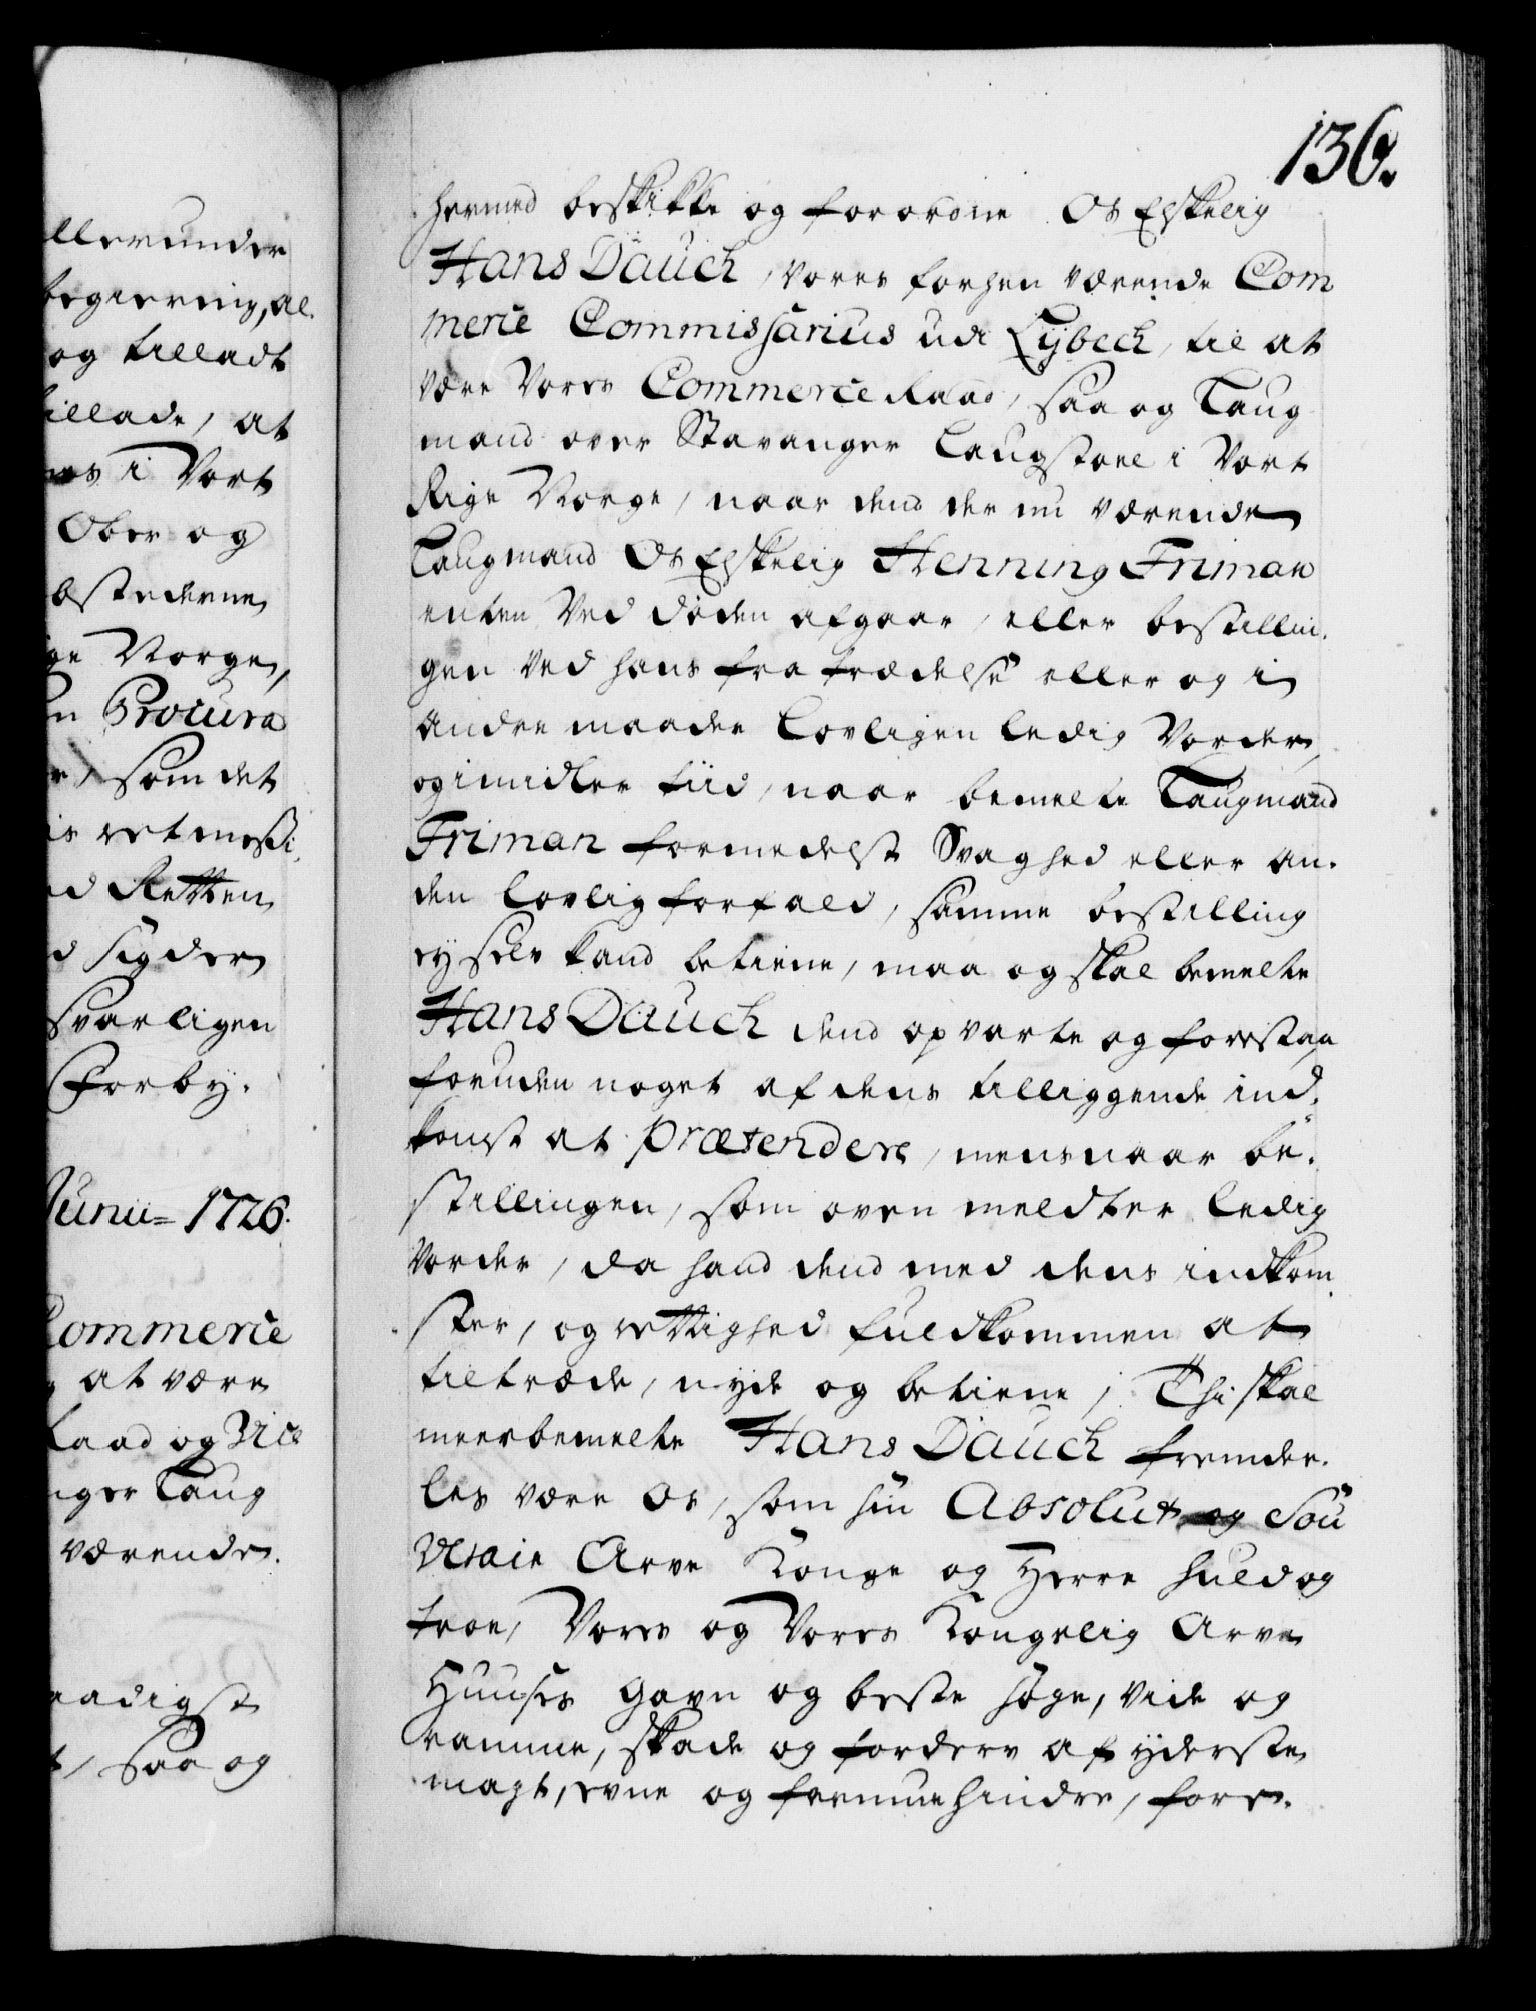 136.
llerunder
begiering, al.
og tilladt
tillade, at
i Vort
Ober og
bstederne
ge Norge,
Procura
r, som det
is retmessi.
d Retten
d sigder
svarligen
Forby.
Junii = 1726.
Commerie
at være
Raad og Vice
nger Laug
værende.
aadigst
t, saa og
hermed beskikke og forordne Os Elskelig
Hans Dauch, vores forhen værende Com
merie Commissarius udi Lybech, til at
være Vores Commerie Raad, saa og Laug
mand over Stavanger Laugstoel i Vort
Rige Norge, naar dend der nu værende
Laugmand Os Elskelig Henning Friman
enten Ved døden afgaar, eller bestillin.
gen Ved hans fratrædelse eller og i
andre maader Lovligen ledig Vorder,
og imidler tiid, naar bemelte Laugmand
Friman formedelst Svaghed eller an.
den lovlig forfald, samme bestilling
ey selv kand betiene, maa og skal bemelte
Hans Dauch dend opvarte og forestaa
foruden noget af dens tilliggende ind.
komst at prætendere, mens naar be.
stillingen, som oven meldter ledig
Vorder, da hand dend med dens indkom
ster, og rettighed fuldkommen at
tiltræde, nyde og betiene; Thi skal
meerbemelte Hans Dauch fremde.
les være Os, som sin Absolut og Sou
Verain Arve Konge og Herre huld og
troe, Vores og Vores Kongelig Arve
Huuses gavn og beste søge, vide og
ramme, skade og forderv af yderste
magt, evne og formue hindre, fore.